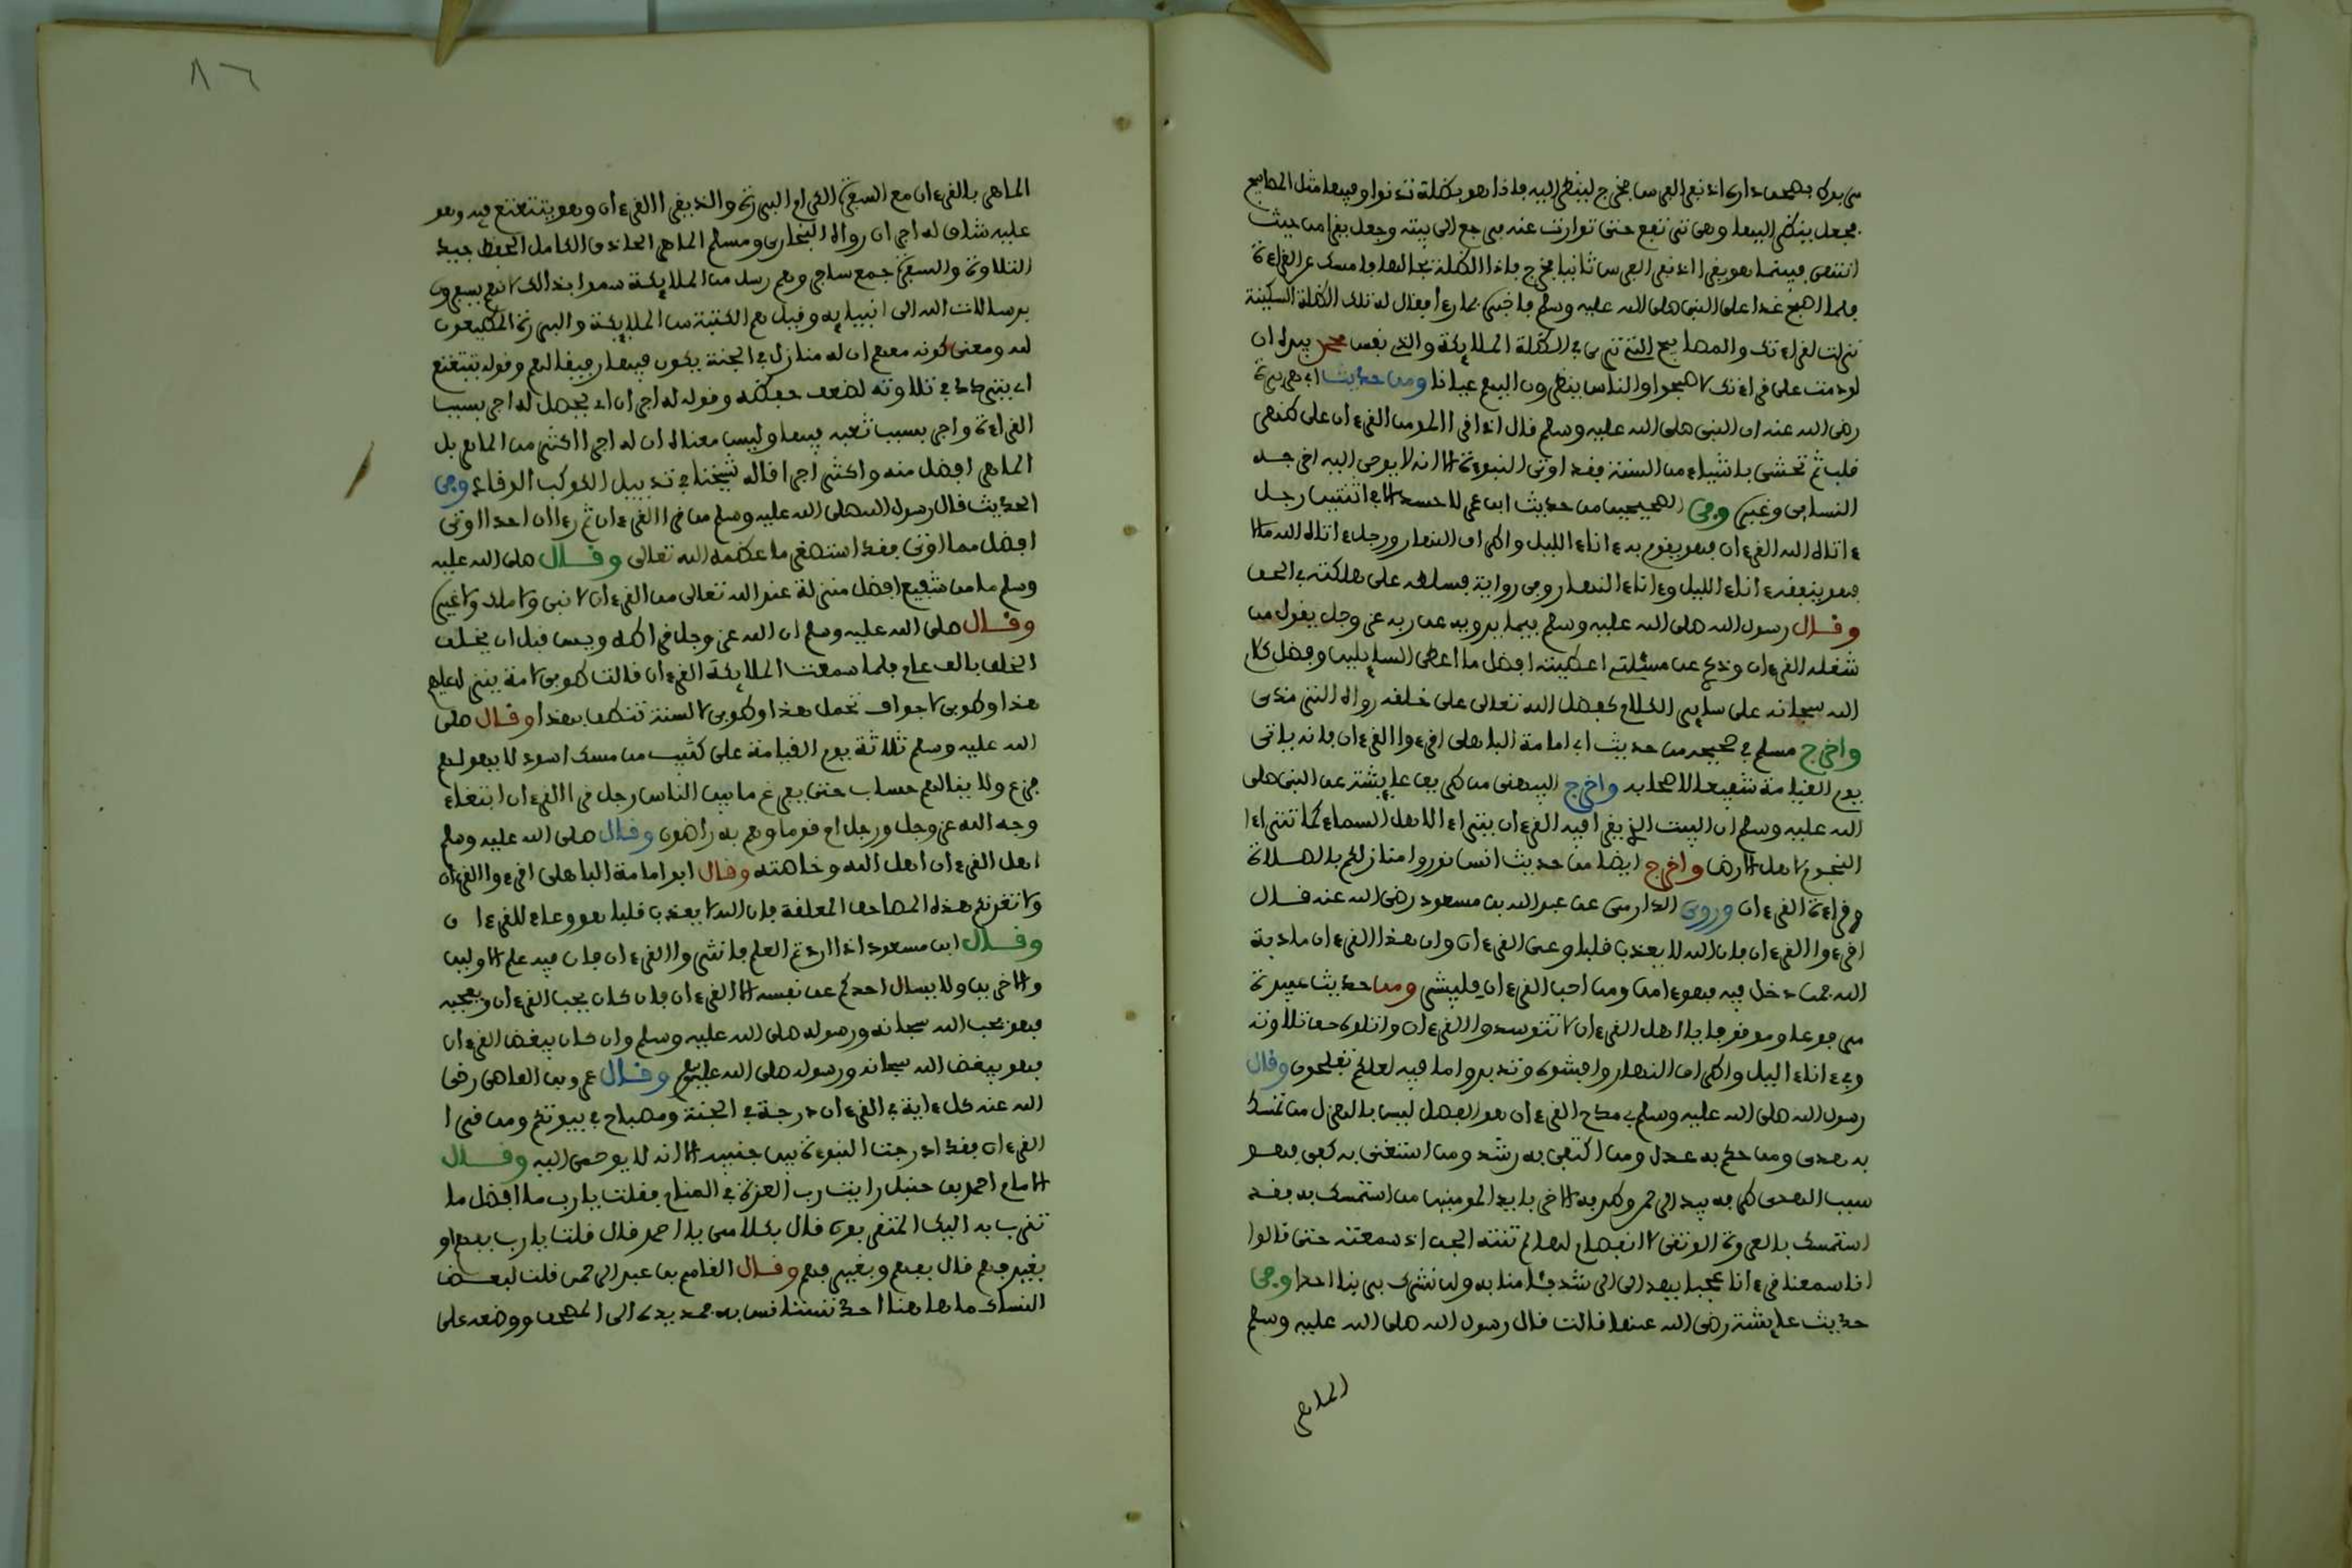 مربوط بصحن داره اذ نفر الفرس فخرج لينظر اليه فاذا هو بظلة تدنوا وفيها مثل المصابيح
فجعل ينظر اليها وهي ترتفع حتى توارت عنه فرجع الى بيته وجعل يقرا من حيث
انتهى فبينما هو يقرا اذ نفر الفرس ثانيا فخرج فاذا الظلة بحالها فامسك عن القراءة
فلما اصبح غدا على النبي صلى الله عليه وسلم فاخبره بما رءا فقال له تلك الظلة السكينة
نزلت لقراءتك والمصابيح التي ترى في الظلة الملايكة والذي نفس محمد بيده ان
لو دمت على قراءتك لاصبحوا والناس ينظرون اليهم عيانا ومن حديث ابي هريرة
رضي الله عنه ان النبي صلى الله عليه وسلم قال اذا قرا المومن القرءان على ظهر
قلب ثم تحشى باشياء من السنة فقد اوتي النبوءة الا انه لا يوحى اليه اخرجه
النسايي وغيره وفي الصحيحين من حديث ابن عمر لا حسد الا في اثنتين رجل
ءاتاه الله القرءان فهو يقوم به ءاناء الليل واطراف النهار ورجل ءاتاه الله مالا
فهو ينفقه ءاناء الليل وءاناء النهار وفي رواية فسلطه على هلكته في الحق
وقال رسول الله صلى الله عليه وسلم فيما يرويه عن ربه عز وجل يقول من
شغله القرءان وذكري عن مسئلتي اعطيته افضل ما اعطي السايلين وفضل كلام
الله سبحانه على ساير الكلام كفضل الله تعالى على خلقه رواه الترمذي
واخرج مسلم في صحيحه من حديث ابي امامة الباهلي اقرءوا القرءان فانه ياتي
يوم القيامة شفيعا لاصحابه واخرج البيهقي من طريق عايشة عن النبي صلى
الله عليه وسلم ان البيت الذي يقرا فيه القرءان يتراءا لاهل السماء كما تتراءا
النجوم لاهل الارض واخرج ايضا من حديث انس نوروا منازلكم بالصلاة
وقراءة القرءان وروى الدارمي عن عبد الله بن مسعود رضي الله عنه قال
اقرءوا القرءان فان الله لا يعذب قلبا وعى القرءان وان هذا القرءان مادبة
الله فمن دخل فيه فهو ءامن ومن احب القرءان فليبشر ومن حديث عبيدة
مرفوعا وموقوفا يا اهل القرءان لا تتوسدوا القرءان واتلوه حق تلاوته
في ءاناء الليل واطراف النهار وافشوه وتدبروا ما فيه لعلكم تفلحون وقال
رسول الله صلى الله عليه وسلم في مدح القرءان هو الفصل ليس بالهزل من تمسك
به هدي ومن حكم به عدل ومن اكتفى به رشد ومن استغنى به كفي فهو
سبب الهدى طرفه بيد الرحمن وطرفه الاخر بايد المومنين من استمسك به فقد
استمسك بالعروة الوثقى لا انفصام لها لم تنته الجن اذ سمعته حتى قالوا
انا سمعنا قرءانا عجبا يهدي الى الرشد فئامنا به ولن نشرك بربنا احدا وفي
حديث عايشة رضي الله عنها قالت قال رسول الله صلى الله عليه وسلم
الماهر
٨٦
الماهر بالقرءان مع السفرة الكرام البررة والذي يقرا القرءان وهو يتتعتع فيه وهو
عليه شاق له اجران رواه البخاري ومسلم الماهر الحاذق الكامل الحفظ جيد
التلاوة والسفرة جمع سافر وهم رسل من الملايكة سموا بذالك لانهم يسفرون
برسالات الله الى انبيايه وقيل هم الكتبة من الملايكة والبررة المطيعون
لله ومعنى كونه معهم ان له منازل في الجنة يكون فيها رفيقا لهم وقوله يتتعتع
اي يتردد في تلاوته لضعف حفظه وقوله له اجران اي يحصل له اجر بسبب
القراءة واجر بسبب تعبه فيها وليس معناه ان له اجرا اكثر من الماهر بل
الماهر افضل منه واكثر اجرا قاله شيخنا في تذييل الكوكب الوقاد وفي
الحديث قال رسول الله صلى الله عليه وسلم من قرا القرءان ثم رءا ان احدا اوتي
افضل مما اوتي فقد استصغر ما عظمه الله تعالى وقال صلى الله عليه
وسلم ما من شفيع افضل منزلة عند الله تعالى من القرءان لا نبي ولا ملك ولا غيره
وقال صلى الله عليه وسلم ان الله عز وجل قرا طه ويس قبل ان يخلق
الخلق بالف عام فلما سمعت الملايكة القرءان قالت طوبى لامة ينزل عليهم
هذا وطوبى لاجواف تحمل هذا وطوبى لالسنة تنطق بهذا وقال صلى
الله عليه وسلم ثلاثة يوم القيامة على كثيب من مسك اسود لا يهولهم
فزع ولا ينالهم حساب حتى يفرغ ما بين الناس رجل قرا القرءان ابتغاء
وجه الله عز وجل ورجل ام قوما وهم به راضون وقال صلى الله عليه وسلم
اهل القرءان اهل الله وخاصته وقال ابو امامة الباهلي اقرءوا القرءان
ولا تغرنكم هذه المصاحف المعلقة فان الله لا يعذب قلبا هو وعاء للقرءان
وقال ابن مسعود اذا اردتم العلم فانشروا القرءان فان فيه علم الاولين
والاخرين ولا يسال احدكم عن نفسه الا القرءان فان كان يحب القرءان ويعجبه
فهو يحب الله سبحانه ورسوله صلى الله عليه وسلم وان كان يبغض القرءان
فهو يبغض الله سبحانه ورسوله صلى الله عليه وسلم وقال عمرو بن العاصي رضي
الله عنه كل ءاية في القرءان درجة في الجنة ومصباح في بيوتكم ومن قرا
القرءان فقد ادرجت النبوءة بين جنبيه الا انه لا يوحى اليه وقال
الامام احمد بن حنبل رايت رب العزة في المنام فقلت يا رب ما افضل ما
تقرب به اليك المتقربون قال بكلامي يا احمد قال قلت يا رب بفهم او
بغير فهم قال بفهم وبغير فهم وقال القاسم بن عبد الرحمن قلت لبعض
النساك ما هاهنا احد تستانس به فمد يده الى المصحف ووضعه على